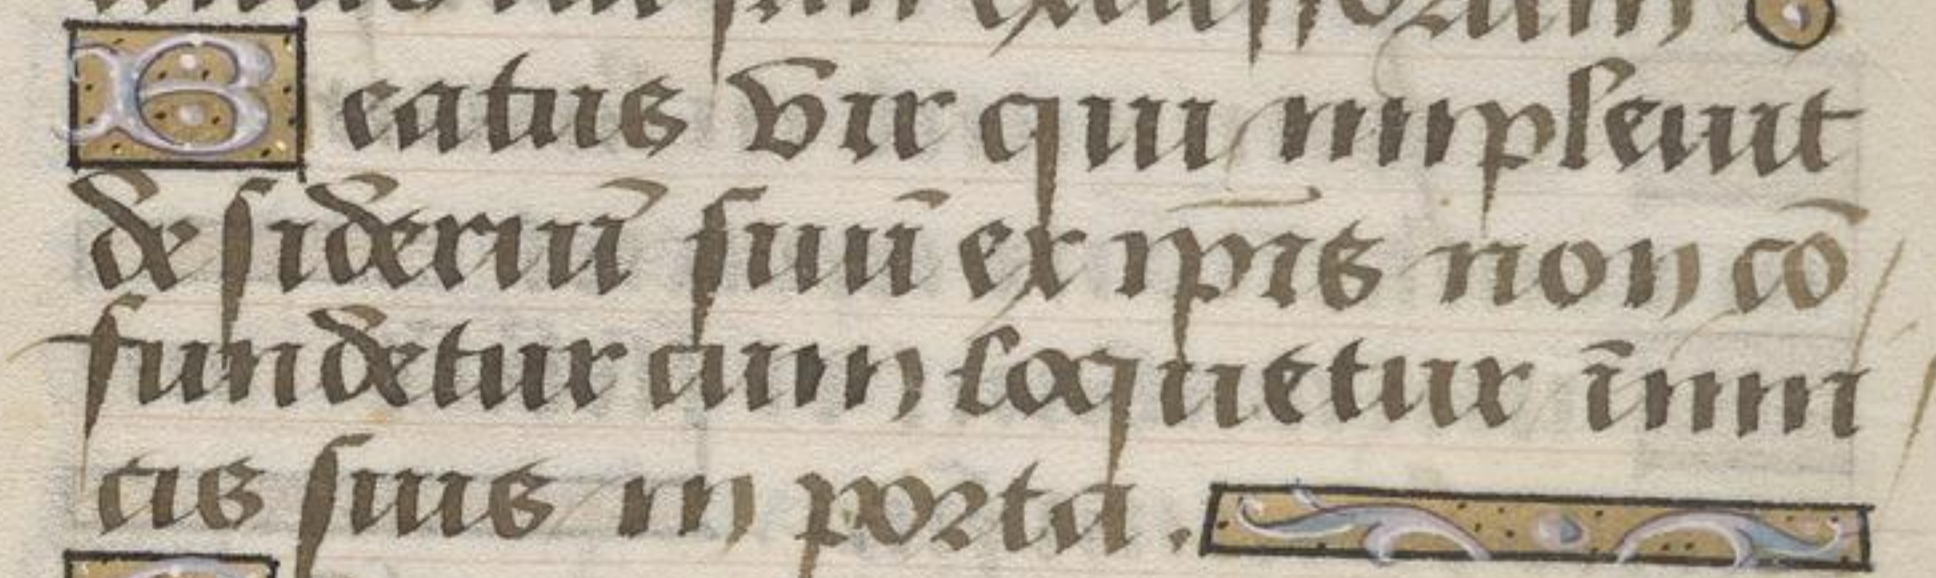 excussorum
Beatus vir qui impleuit
desideriū suū ex ip̄is non cō
fundetur cum loquetur inimi
cis suis in porta.